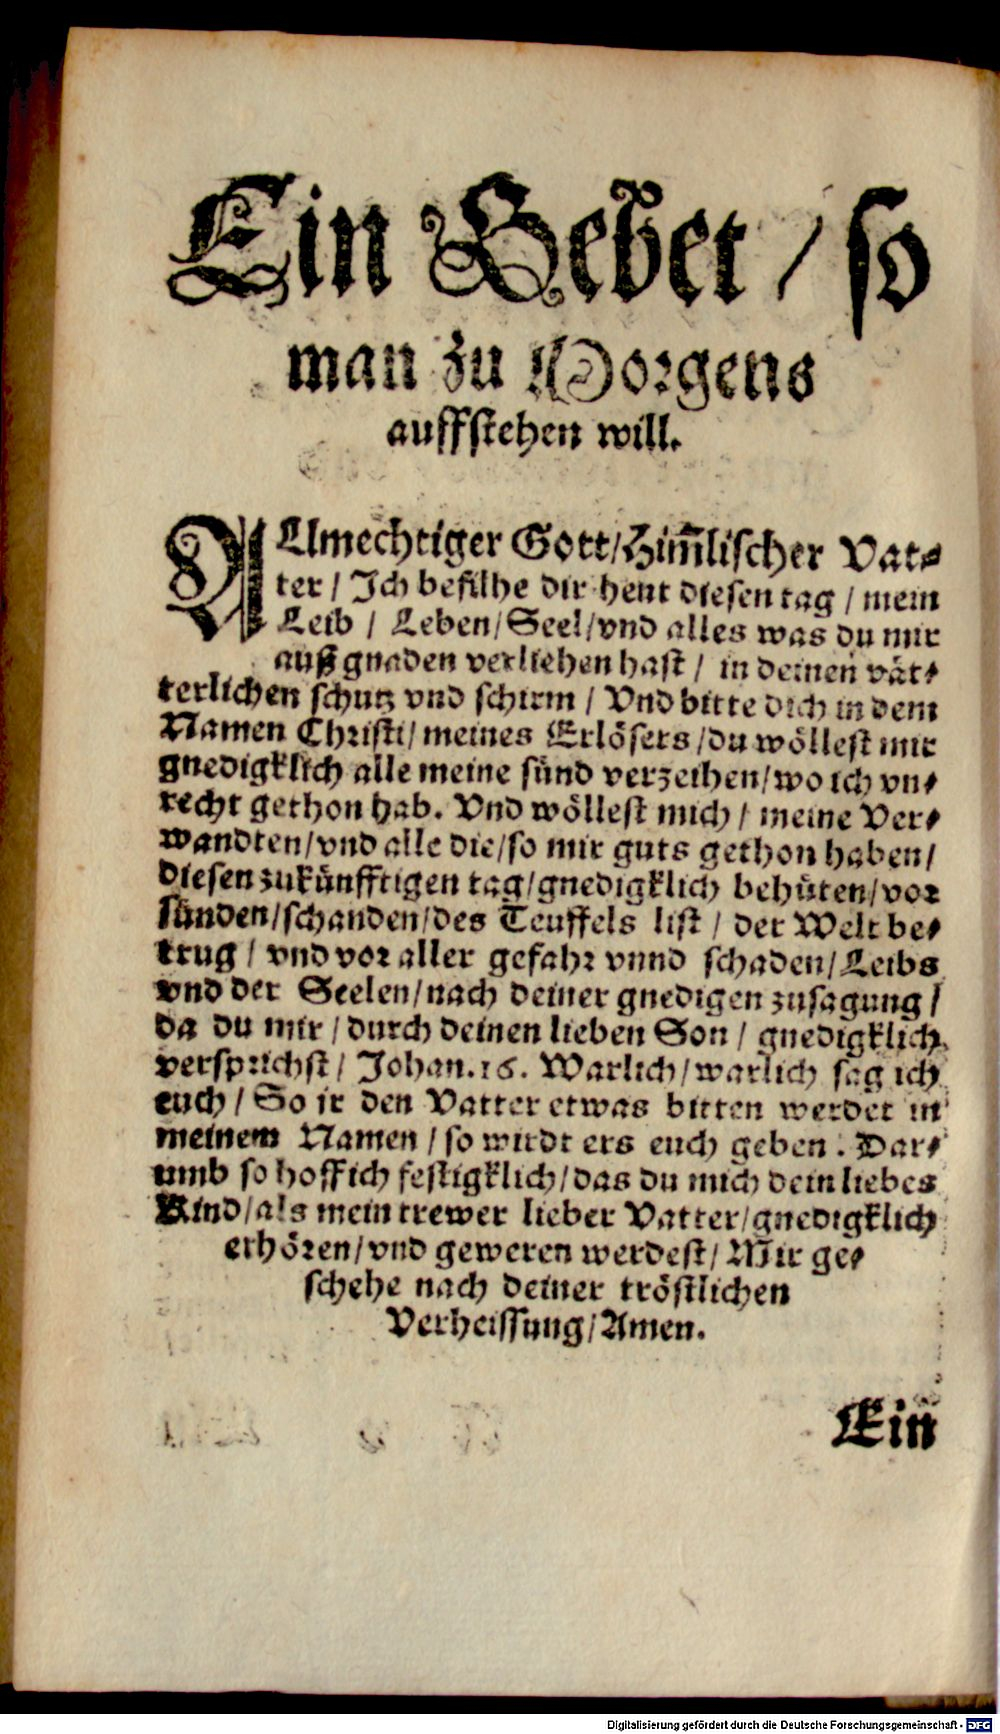 Ein Gebet / so
man zu Morgens
auffstehen will.
ALlmechtiger Gott / Him̃lischer Vat⸗
ter / Ich befilhe dir heut diesen tag / mein
Leib / Leben / Seel / vnd alles was du mir
auß gnaden verliehen hast / in deinen vät⸗
terlichen schutz vnd schirm / Vnd bitte dich in dem
Namen Christi / meines Erlösers / du wöllest mir
gnedigklich alle meine sünd verzeihen / wo ich vn⸗
recht gethon hab. Vnd wöllest mich / meine Ver⸗
wandten / vnd alle die / so mir guts gethon haben /
diesen zukünfftigen tag / gnedigklich behüten / vor
sünden / schanden / des Teuffels list / der Welt be⸗
trug / vnd vor aller gefahr vnnd schaden / Leibs
vnd der Seelen / nach deiner gnedigen zusagung /
da du mir / durch deinen lieben Son / gnedigklich
versprichst / Johan. 16. Warlich / warlich sag ich
euch / So ir den Vatter etwas bitten werdet in
meinem Namen / so wirdt ers euch geben. Dar⸗
umb so hoff ich festigklich / das du mich dein liebes
Kind / als mein trewer lieber Vatter / gnedigklich
erhören / vnd geweren werdest / Mir ge⸗
schehe nach deiner tröstlichen
Verheissung / Amen.
Ein
Digitalisierung gefördert durch die Deutsche Forschungsgemeinschaft - DFG